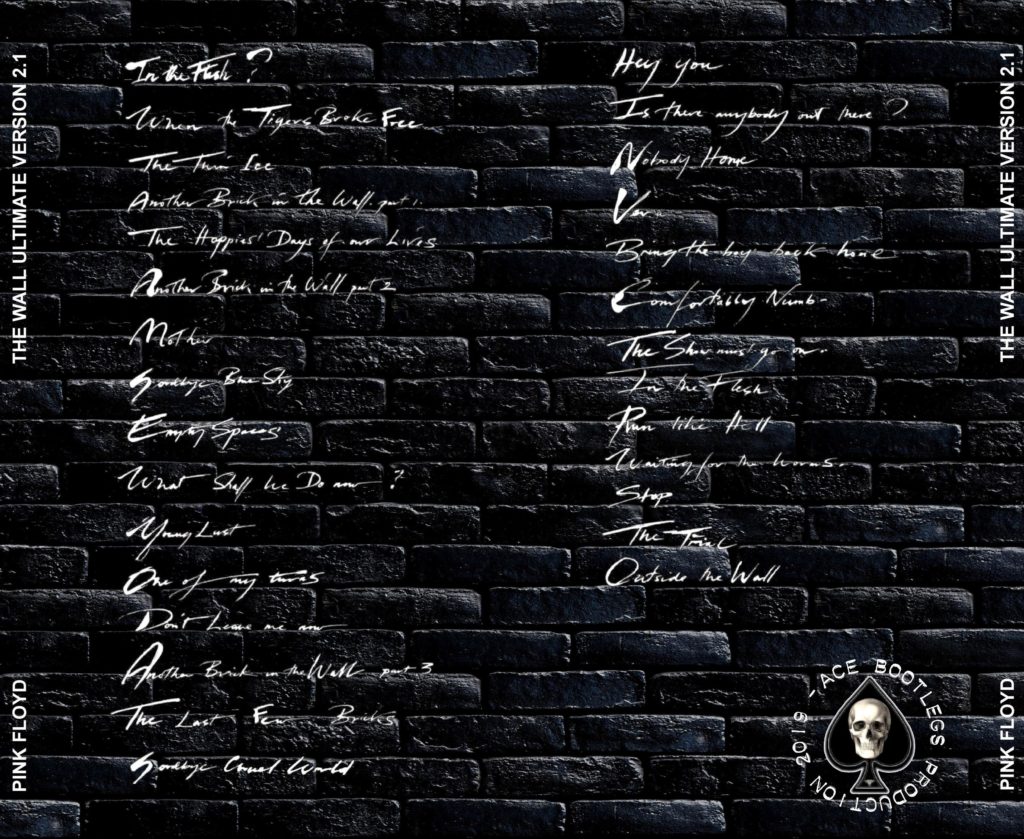 THE WALL ULTIMATE VERSION 2.1
PINK FLOYD
In the Flesh ?
When the Tigers Broke Free
The Thin Ice
Another Brick in the Wall part 1.
The Happiest Days of our Lives
Another Brick in the Wall part 2
Mother
Goodbye Blue Sky
Empty Spaces
What Shall We Do now ?
Young Lust
One of my turns
Don't Leave me now
Another Brick in the Wall part 3
The Last Few Bricks
Goodbye Cruel World
Hey you
Is there anybody out there ?
Nobody Home
Vera
Bring the boy back home
Comfortably Numb
The Show must go on
In the Flesh
Run like Hell
Waiting for the worms
Stop
The Trial
Outside the Wall
2019 - ACE BOOTLEGS PRODUCTION
THE WALL ULTIMATE VERSION 2.1
PINK FLOYD